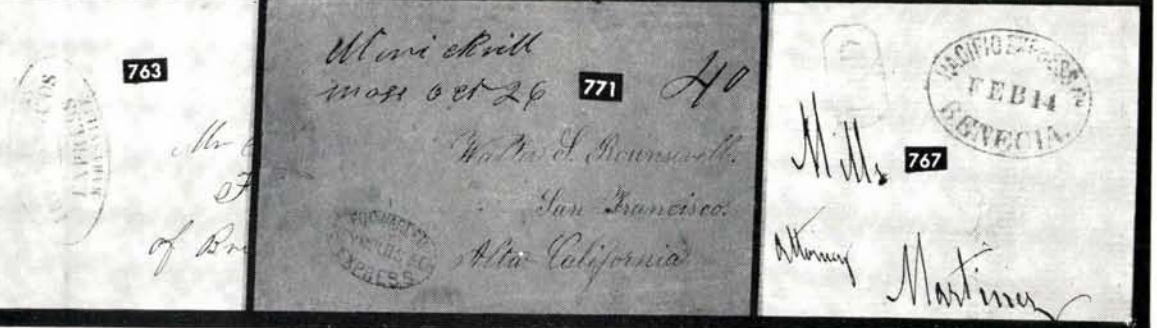 763
COS
EXPRESS
Mr
of Br
Mini
mass oct 26
771
40
Walter S. Rounsevell
San Francisco
Alta California
EXPRESS
PACIFIC EXPRESS Co
FEB 14
BENECIA.
Mills
767
Attorney
Martinez